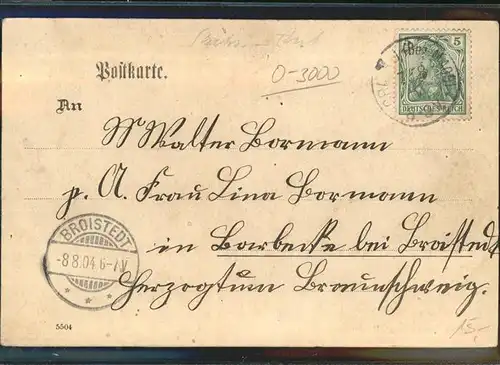 Postkarte.
0-3000
5
DEUTSCHES REICH
An
Walter Bormann
p. A. Frau Lina Bormann
in Barbecke bei Broistedt
Herzogtum Braunschweig.
BROISTEDT
-8.8.04 6-7 V
5504
15,-